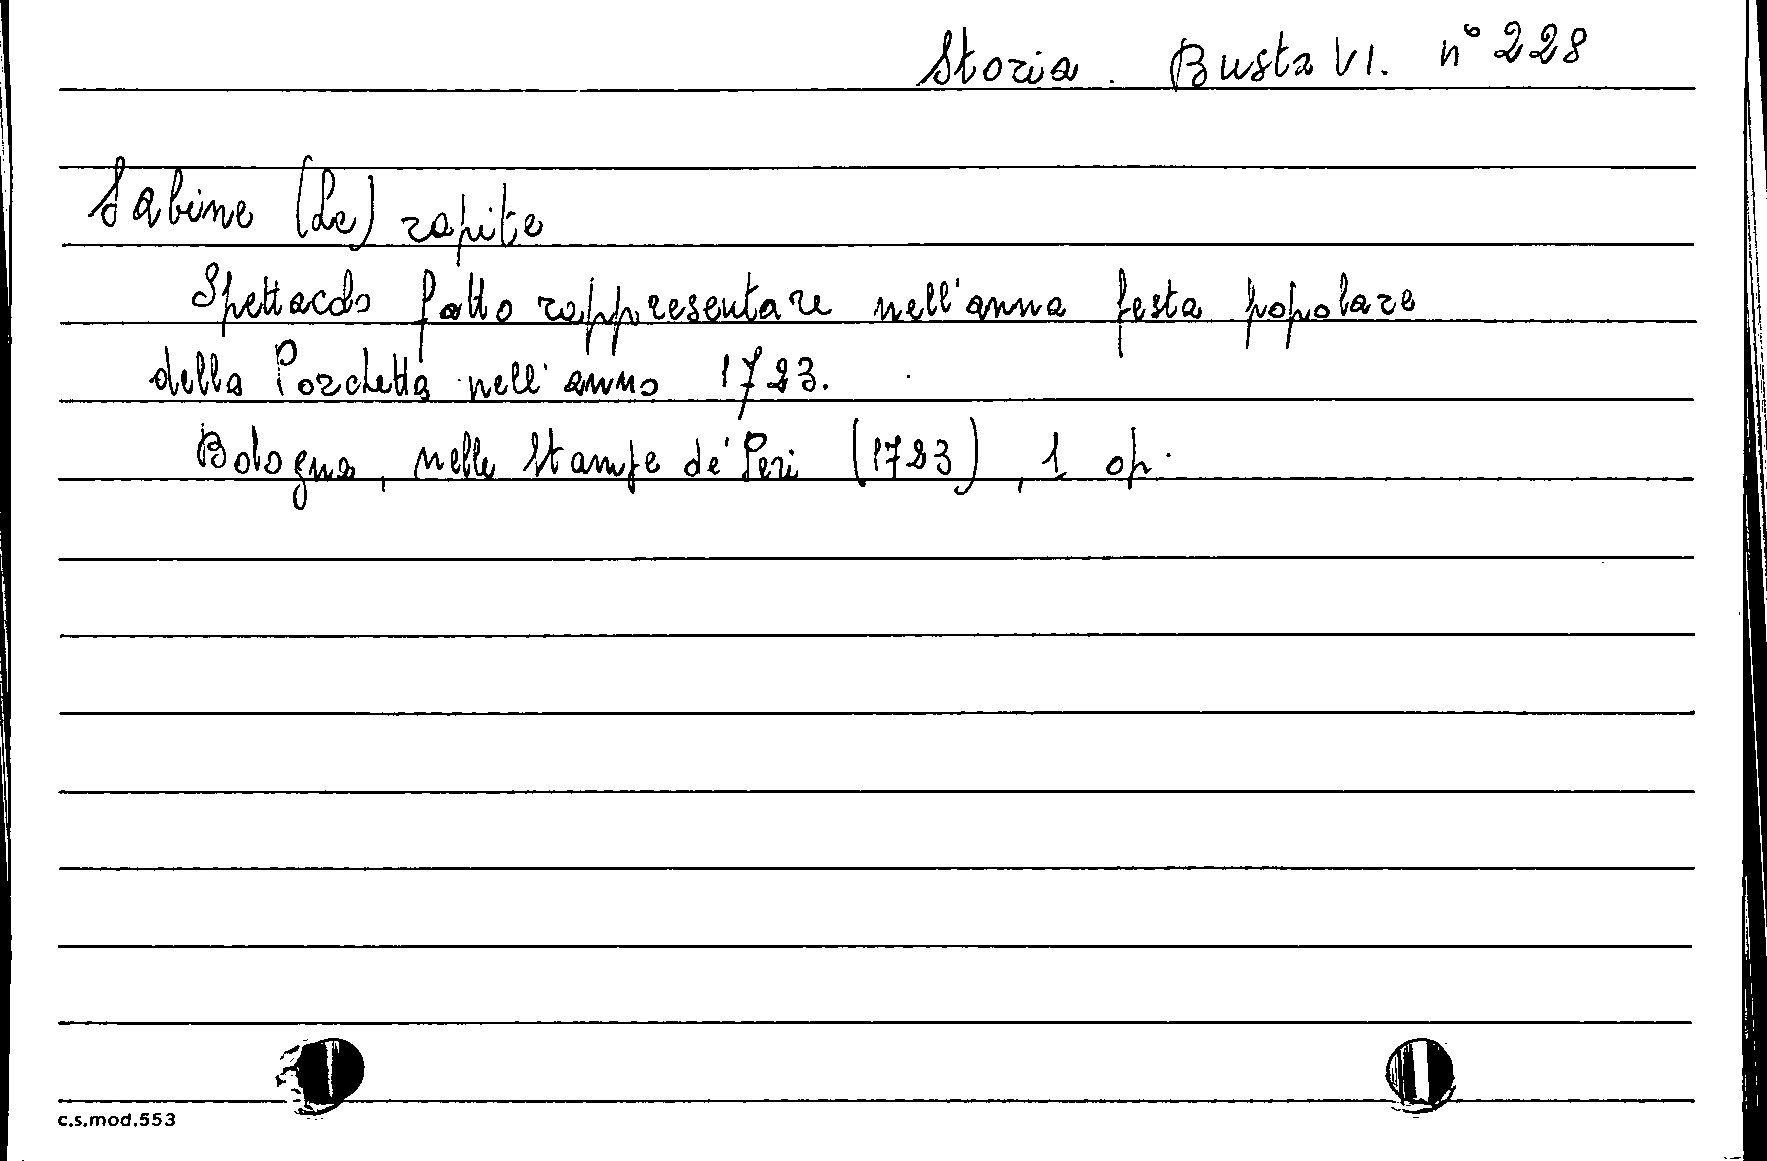 Storia. Busta VI. n° 228
Sabine (Le) rapite
Spettacolo fatto rappresentare nell'anna festa popolare
della Porchetta nell'anno 1723.
Bologna, nelle Stampe de' Peri (1723), 1 op.
c.s.mod.553